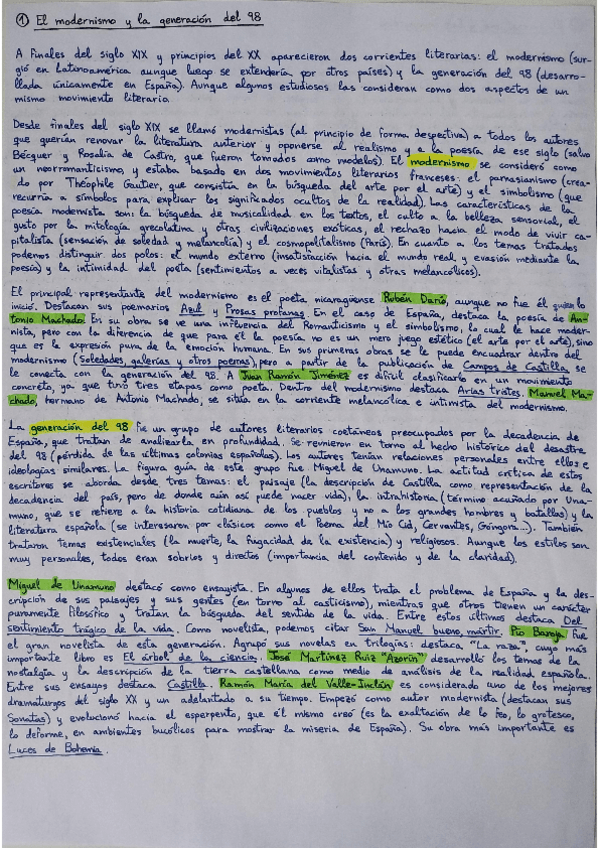 ① El modernismo y la generación del 98
A finales del siglo XIX y principios del XX aparecieron dos corrientes literarias: el modernismo (sur-
gió en Latinoamérica aunque luego se extendería por otros países) y la generación del 98 (desarro-
llada únicamente en España). Aunque algunos estudiosos las consideran como dos aspectos de un
mismo movimiento literario.
Desde finales del siglo XIX se llamó modernistas (al principio de forma despectiva) a todos los autores
que querían renovar la literatura anterior y oponerse al realismo y a la poesía de ese siglo (salvo
Bécquer y Rosalía de Castro, que fueron tomados como modelos). El modernismo se consideró como
un neorromanticismo, y estaba basado en dos movimientos literarios franceses: el parnasianismo (crea-
do por Théophile Gautier, que consistía en la búsqueda del arte por el arte) y el simbolismo (que
recurría a símbolos para explicar los significados ocultos de la realidad). Las características de la
poesía modernista son: la búsqueda de musicalidad en los textos, el culto a la belleza sensorial, el
gusto por la mitología grecolatina y otras civilizaciones exóticas, el rechazo hacia el modo de vivir ca-
pitalista (sensación de soledad y melancolía) y el cosmopolitalismo (París). En cuanto a los temas tratados
podemos distinguir dos polos: el mundo externo (insatisfacción hacia el mundo real y evasión mediante la
poesía) y la intimidad del poeta (sentimientos a veces vitalistas y otras melancólicos).
El principal representante del modernismo es el poeta nicaragüense Rubén Darío, aunque no fue él quien lo
inició. Destacan sus poemarios Azul y Prosas profanas. En el caso de España, destaca la poesía de An-
tonio Machado. En su obra se ve una influencia del Romanticismo y el simbolismo, lo cual le hace moder-
nista, pero con la diferencia de que para él la poesía no es un mero juego estético (el arte por el arte), sino
que es la expresión pura de la emoción humana. En sus primeras obras se le puede encuadrar dentro del
modernismo (Soledades, galerías y otros poemas), pero a partir de la publicación de Campos de Castilla se
le conecta con la generación del 98. A Juan Ramón Jiménez es difícil clasificarlo en un movimiento
concreto, ya que tuvo tres etapas como poeta. Dentro del modernismo destaca Arias tristes. Manuel Ma-
chado, hermano de Antonio Machado, se sitúa en la corriente melancólica e intimista del modernismo.
La generación del 98 fue un grupo de autores literarios coetáneos preocupados por la decadencia de
España, que tratan de analizarla en profundidad. Se reunieron en torno al hecho histórico del desastre
del 98 (pérdida de las últimas colonias españolas). Los autores tenían relaciones personales entre ellos e
ideologías similares. La figura guía de este grupo fue Miguel de Unamuno. La actitud crítica de estos
escritores se aborda desde tres temas: el paisaje (la descripción de Castilla como representación de la
decadencia del país, pero de donde aún así puede nacer vida), la intrahistoria (término acuñado por Una-
muno, que se refiere a la historia cotidiana de los pueblos y no a los grandes hombres y batallas) y la
literatura española (se interesaron por clásicos como el Poema del Mío Cid, Cervantes, Góngora...). También
trataron temas existenciales (la muerte, la fugacidad de la existencia) y religiosos. Aunque los estilos son
muy personales, todos eran sobrios y directos (importancia del contenido y de la claridad).
Miguel de Unamuno destacó como ensayista. En algunos de ellos trata el problema de España y la des-
cripción de sus paisajes y sus gentes (en torno al casticismo), mientras que otros tienen un carácter
puramente filosófico y tratan la búsqueda del sentido de la vida. Entre estos últimos destaca Del
sentimiento trágico de la vida. Como novelista, podemos citar San Manuel bueno, mártir. Pío Baroja fue
el gran novelista de esta generación. Agrupó sus novelas en trilogías: destaca "La raza", cuyo más
importante libro es El árbol de la ciencia. José Martínez Ruiz "Azorín" desarrolló los temas de la
nostalgia y la descripción de la tierra castellana como medio de análisis de la realidad española.
Entre sus ensayos destaca Castilla. Ramón María del Valle-Inclán es considerado uno de los mejores
dramaturgos del siglo XX y un adelantado a su tiempo. Empezó como autor modernista (destacan sus
Sonatas) y evolucionó hacia el esperpento, que él mismo creó (es la exaltación de lo feo, lo grotesco,
lo deforme, en ambientes bucólicos para mostrar la miseria de España). Su obra más importante es
Luces de Bohemia.